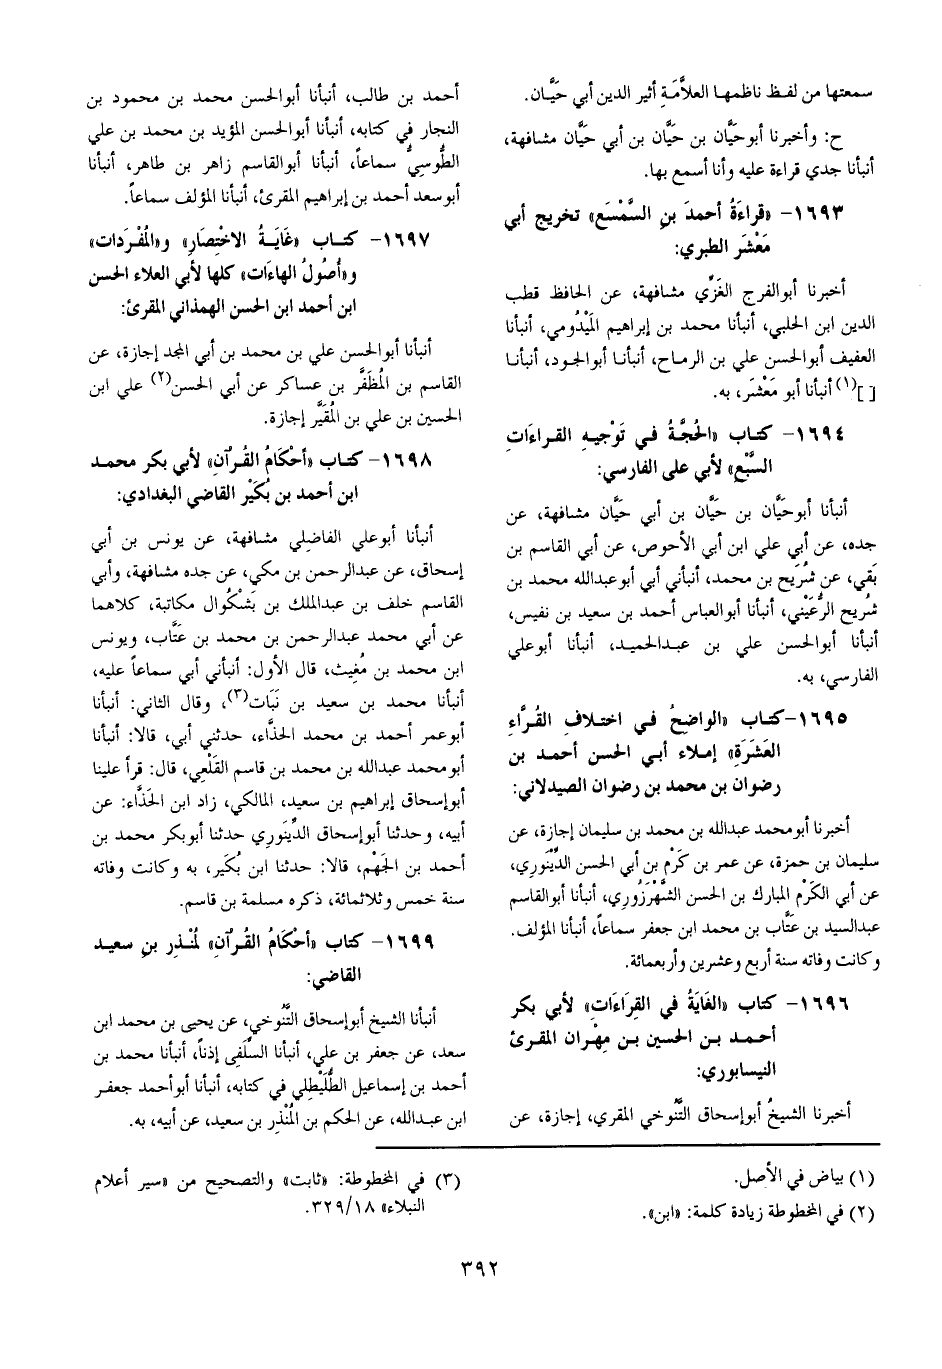 سمعتها من لفظ ناظمها العلاَّمَةِ أثير الدين أبي حَيَّان.
ح: وأخبرنا أبوحَيَّان بن حَيَّان بن أبي حَيَّان مشافهة،
أنبأنا جدي قراءة عليه وأنا أسمع بها.
١٦٩٣- «قراءَةُ أحمدَ بنِ السَّمْسَع» تخريج أبي
مَعْشَر الطبري:
أخبرنا أبوالفرج الغَزِّي مشافهة، عن الحافظ قطب
الدين ابن الحلبي، أنبأنا محمد بن إبراهيم المَيْدُومي، أنبأنا
العفيف أبوالحسن علي بن الرماح، أنبأنا أبوالجود، أنبأنا
[ ](١) أنبأنا أبو مَعْشَر، به.
١٦٩٤- كتاب «الحُجَّةُ في تَوْجيهِ القراءَات
السَّبْع» لأبي على الفارسي:
أنبأنا أبوحَيَّان بن حَيَّان بن أبي حَيَّان مشافهة، عن
جده، عن أبي علي ابن أبي الأحوص، عن أبي القاسم بن
بَقي، عن شُرَيح بن محمد، أنبأني أبي أبوعبدالله محمد بن
شُريح الرُّعَيْني، أنبأنا أبوالعباس أحمد بن سعيد بن نفيس،
أنبأنا أبوالحسن علي بن عبدالحميد، أنبأنا أبوعلي
الفارسي، به.
١٦٩٥-كتاب «الواضحُ في اختلاف القُرَّاءِ
العَشَرَةِ» إملاء أبي الحسن أحمد بن
رضوان بن محمد بن رضوان الصيدلاني:
أخبرنا أبومحمد عبدالله بن محمد بن سليمان إجازة، عن
سليمان بن حمزة، عن عمر بن كَرَم بن أبي الحسن الدِّيْنَوري،
عن أبي الكَرَم المبارك بن الحسن الشَّهْرَزُوري، أنبأنا أبوالقاسم
عبدالسيد بن عتَّاب بن محمد ابن جعفر سماعاً، أنبأنا المؤلف.
وكانت وفاته سنة أربع وعشرين وأربعمائة.
١٦٩٦- كتاب «الغَايَةُ في القِرَاءَات» لأبي بكر
أحمد بن الحسين بن مِهْران المقرئ
النيسابوري:
أخبرنا الشيخُ أبوإسحاق التَّنُوخي المقري، إجازة، عن
أحمد بن طالب، أنبأنا أبوالحسن محمد بن محمود بن
النجار في كتابه، أنبأنا أبوالحسن المؤيد بن محمد بن علي
الطُّوسيُّ سماعاً، أنبأنا أبوالقاسم زاهر بن طاهر، أنبأنا
أبوسعد أحمد بن إبراهيم المقرئ، أنبأنا المؤلف سماعاً.
١٦٩٧- كتاب «غَايَةُ الاخْتِصَارِ» و«المُفْرَدات»
و«أُصُولُ الهاءَات» كلها لأبي العلاء الحسن
ابن أحمد ابن الحسن الهمذاني المقرئ:
أنبأنا أبوالحسن علي بن محمد بن أبي المجد إجازة، عن
القاسم بن المُظَفَّر بن عساكر عن أبي الحسن(٢) علي ابن
الحسين بن علي بن المُقَيَّر إجازة.
١٦٩٨- كتاب «أحْكَامُ القُرآنِ» لأبي بكر محمد
ابن أحمد بن بُكَيْر القاضي البغدادي:
أنبأنا أبوعلي الفاضلي مشافهة، عن يونس بن أبي
إسحاق، عن عبدالرحمن بن مكي، عن جده مشافهة، وأبي
القاسم خلف بن عبدالملك بن بَشْكُوال مكاتبة، كلاهما
عن أبي محمد عبدالرحمن بن محمد بن عَتَّاب، ويونس
ابن محمد بن مُغيث، قال الأول: أنبأني أبي سماعاً عليه،
أنبأنا محمد بن سعيد بن نَبَات(٣)، وقال الثاني: أنبأنا
أبوعمر أحمد بن محمد الحذَّاء، حدثني أبي، قالا: أنبأنا
أبومحمد عبدالله بن محمد بن قاسم القَلْعي، قال: قرأ علينا
أبوإسحاق إبراهيم بن سعيد، المالكي، زاد ابن الحَذَّاء: عن
أبيه، وحدثنا أبوإسحاق الدِّيْنَوري حدثنا أبوبكر محمد بن
أحمد بن الجَهْم، قالا: حدثنا ابن بُكَير، به وكانت وفاته
سنة خمس وثلاثمائة، ذكره مسلمة بن قاسم.
١٦٩٩- كتاب «أحْكامُ القُرآنِ» لمُنْذِر بنِ سعيد
القاضي:
أنبأنا الشيخ أبوإسحاق التَّنُوخي، عن يحيى بن محمد ابن
سعد، عن جعفر بن علي، أنبأنا السِّلَفى إذناً، أنبأنا محمد بن
أحمد بن إسماعيل الطُّلَيْطِلي في كتابه، أنبأنا أبوأحمد جعفر
ابن عبدالله، عن الحكم بن المُنْذِر بن سعيد، عن أبيه، به.
(١) بياض في الأصل.
(٢) في المخطوطة زيادة كلمة: «ابن».
(٣) في المخطوطة: «ثابت» والتصحيح من «سير أعلام
النبلاء» ٣٢٩/١٨.
٣٩٢